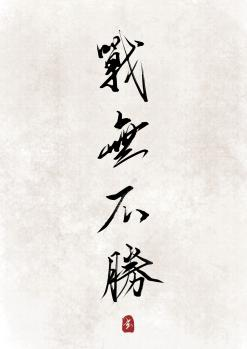 戰無不勝